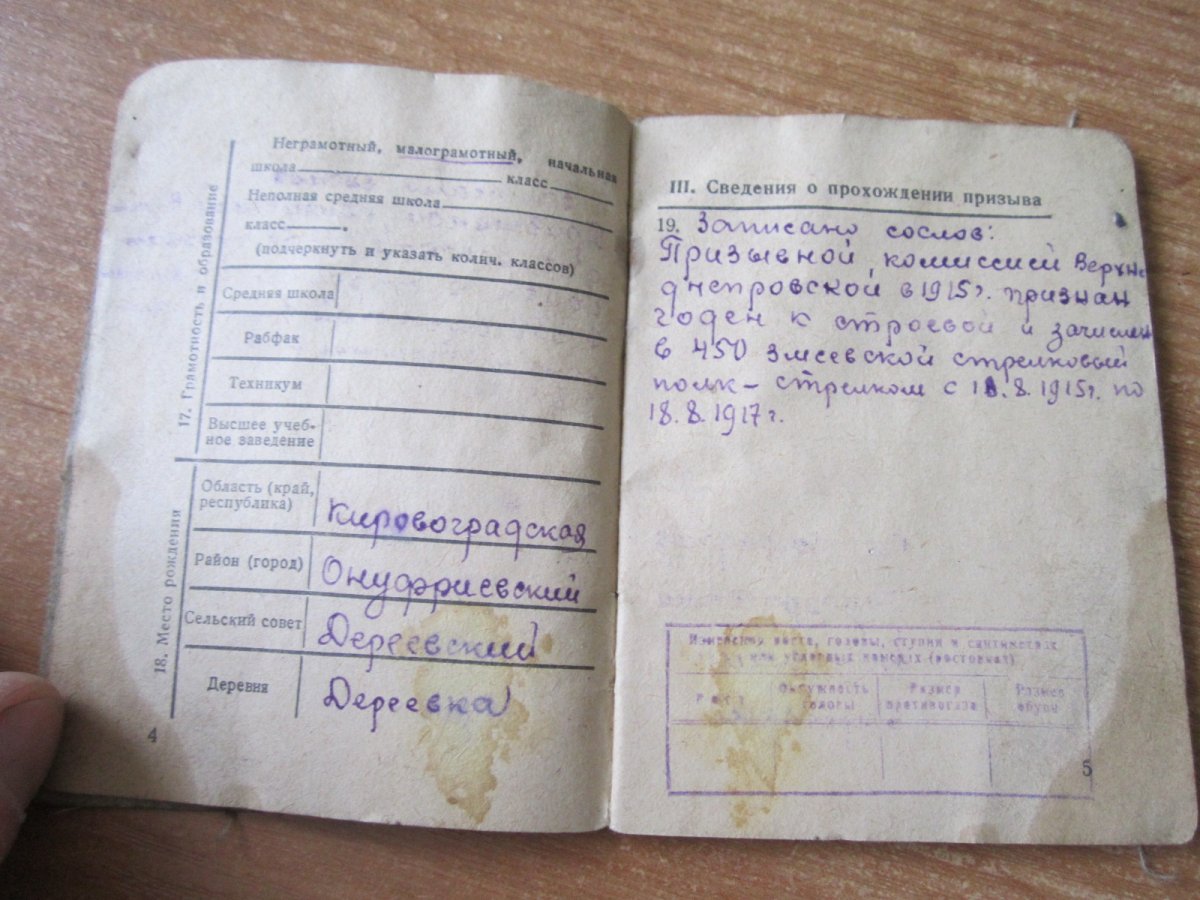 Неграмотный, малограмотный, начальная
школа класс
Неполная средняя школа
класс .
(подчеркнуть и указать колич. классов)
17. Грамотность и образование
Средняя школа
Рабфак
Техникум
Высшее учеб-
ное заведение
18. Место рождения
Область (край,
республика)
Кировоградская
Район (город)
Онуфриевский
Сельский совет
Дереевский
Деревня
Дереевка
4
III. Сведения о прохождении призыва
19. Записано сослов:
Призывной комиссией Верхне
днепровской в 1915г. признан
годен к строевой и зачислен
в 450 Змеевской стрелковый
полк – стрелком с 18.8.1915г. по
18.8.1917г.
роста, головы, ступни в сантиметрах
или условных номерах (ростовках)
Рост
Окружность
головы
Размер
противогаза
Размер
обуви
5